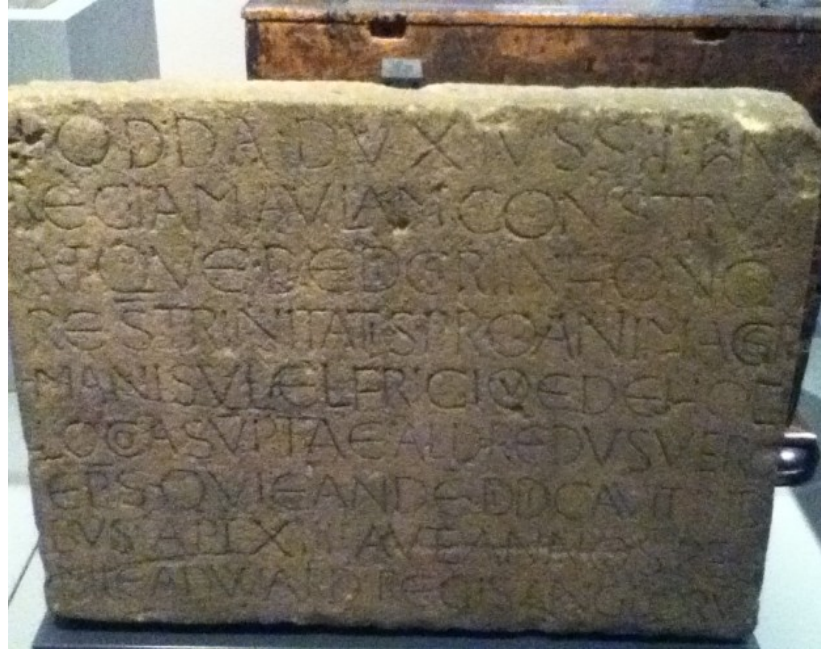 +ODDA DVX IVSSIT HAN
REGIAM AVLAM CONSTRV
ATQVE DEDICARI IN HONO
RE S TRINITATIS PRO ANIMA GER
MANI SVI ÆLFRICI QVE DE HOC
LOCO ASVPTA EALDREDVS VERO
EPS QVI EANDE DEDICAVIT
BVS APL XIIII AVTE ANNOS REG
NI EADWARDI REGIS ANGLORV